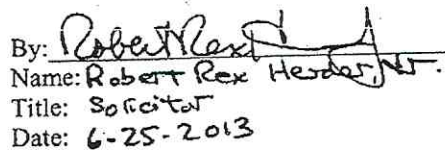 By: Robert Rex
Name: Robert Rex Herder, Jr.
Title: Solicitor
Date: 6-25-2013